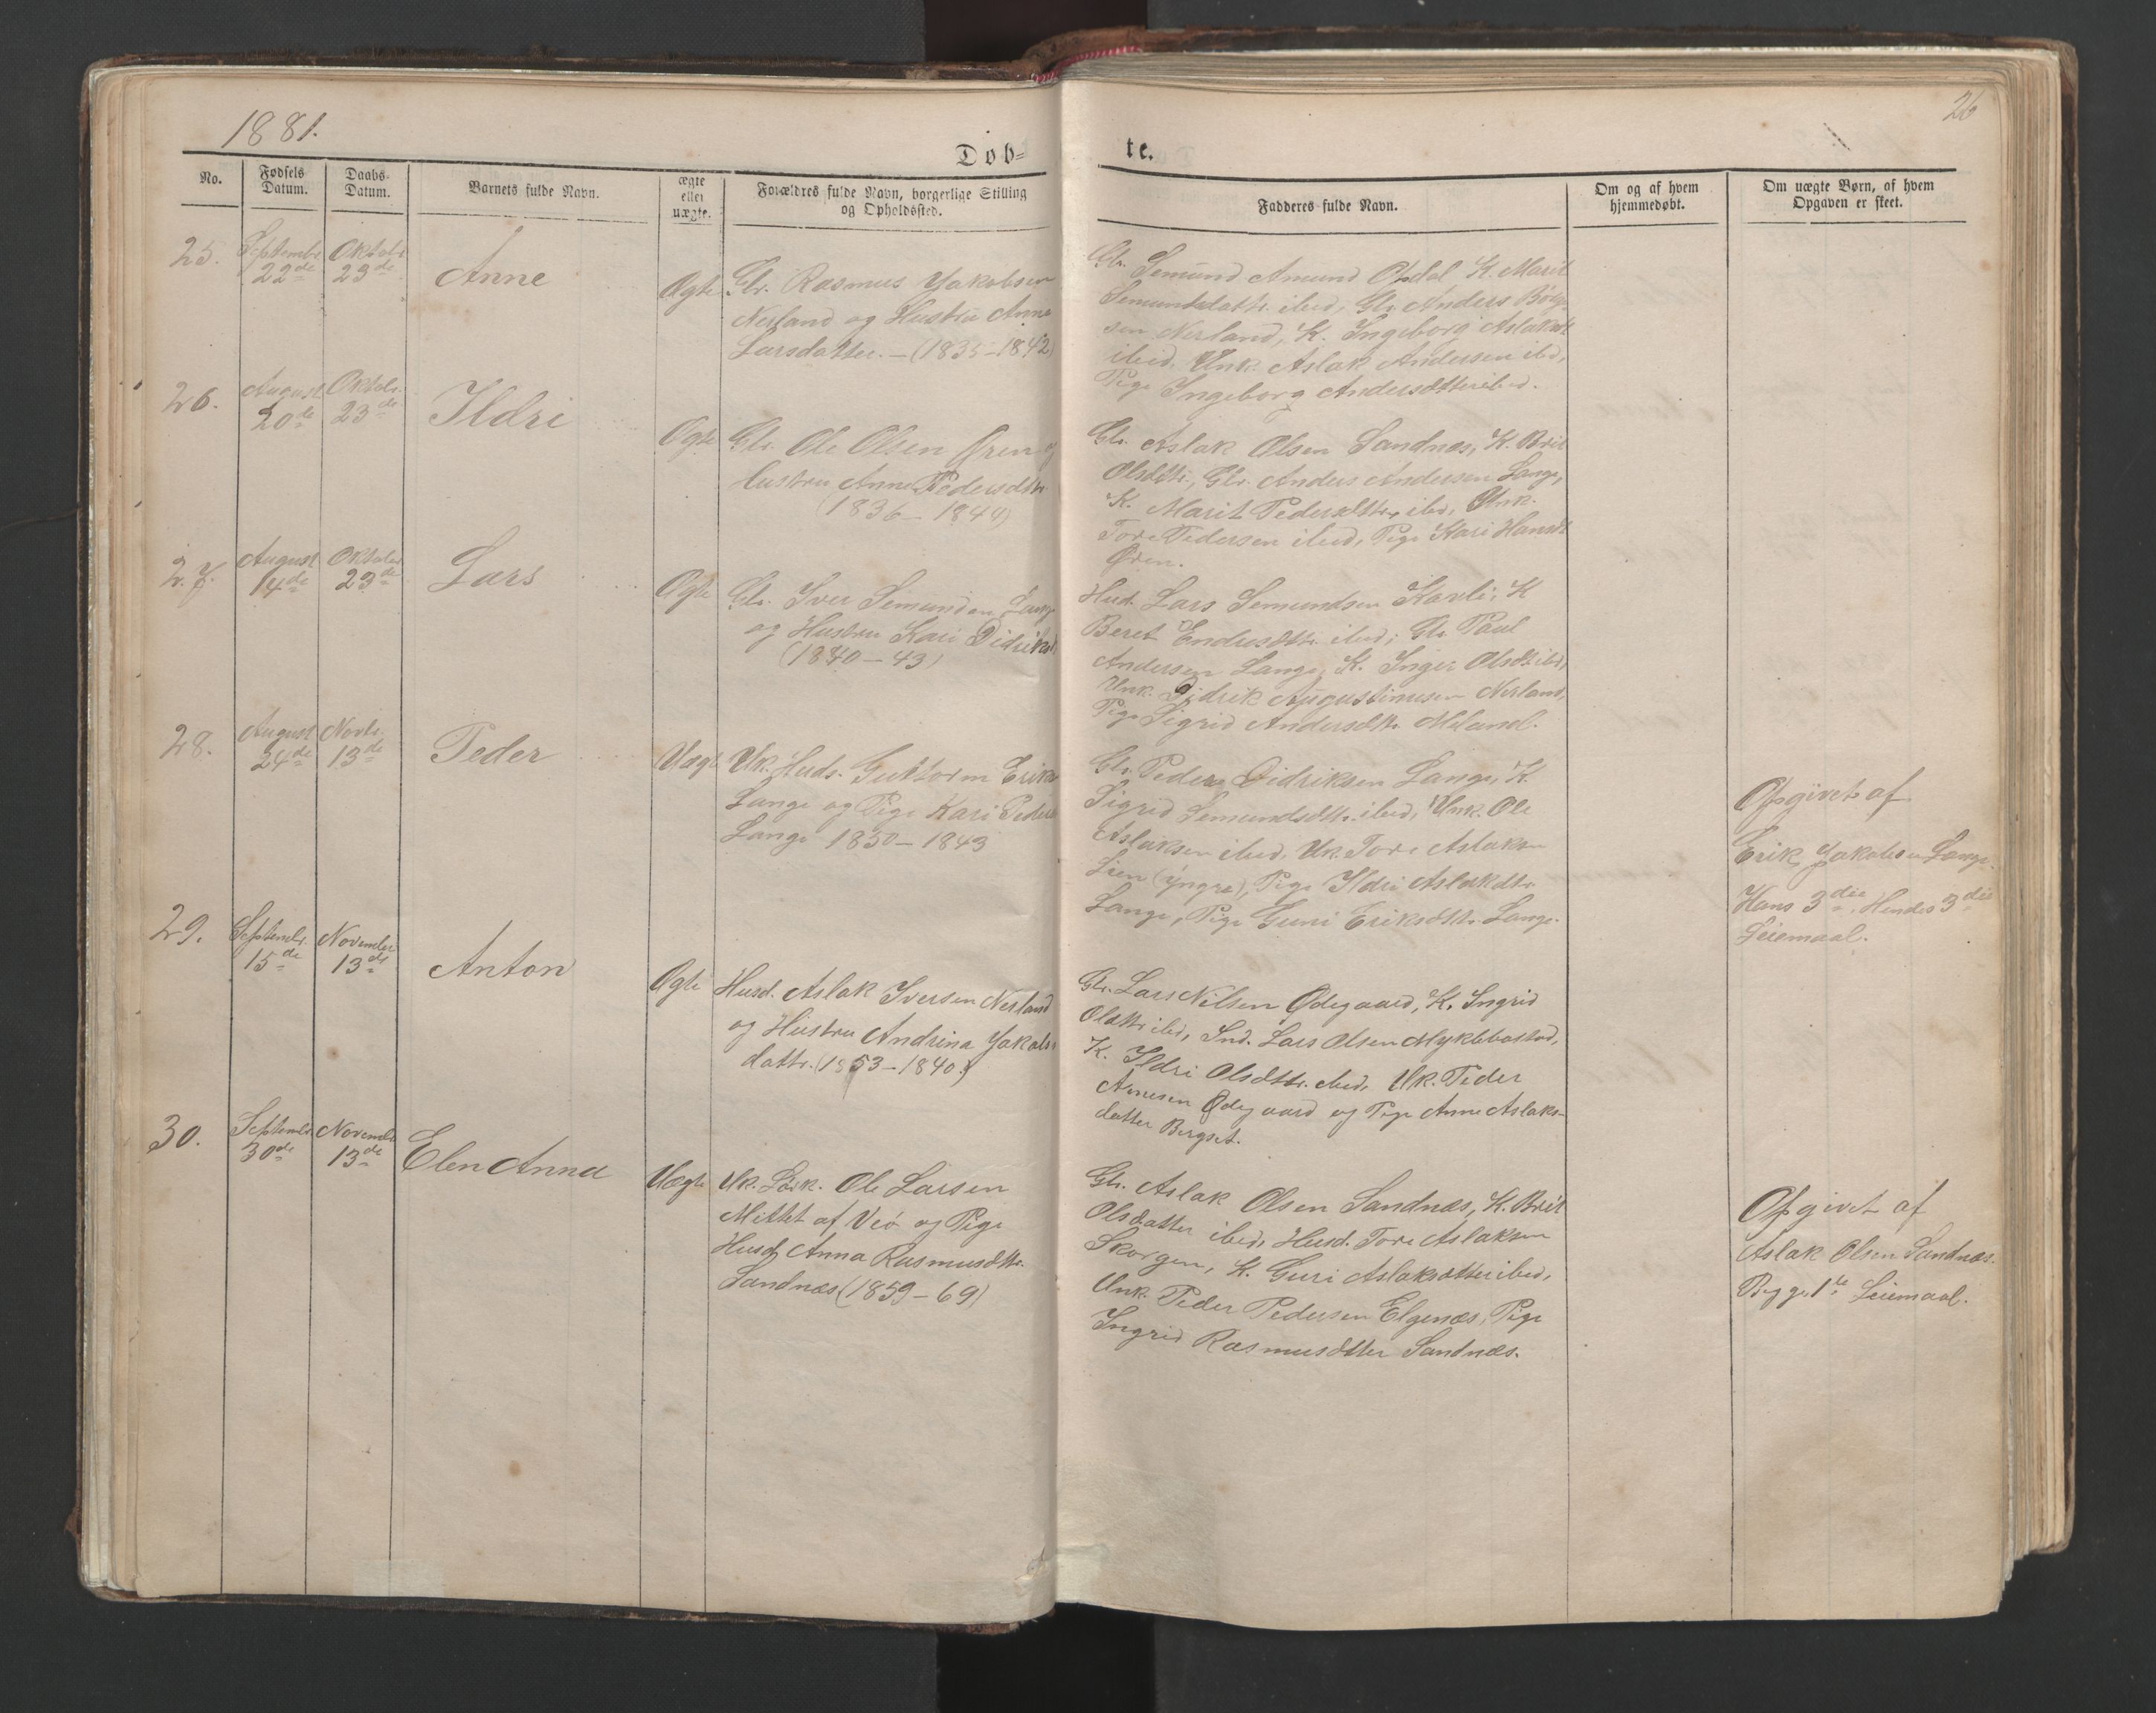 1881.
26
Døb=
te.
No.
Fødsels Datum.
Daabs- Datum.
Barnets fulde Navn.
ægte eller uægte.
Forældres fulde Navn, borgerlige Stilling
og Opholdssted.
Fadderes fulde Navn.
Om og af hvem
hjemmedøbt.
Om uægte Børn, af hvem
Opgaven er skeet.
25.
Septembr
22de
Oktobr
23de
Anne
Ægte
Gbr. Rasmus Jakobsen
Nerland og Hustru Anne
Larsdatter. — (1835-1842)
Gbr. Semund Amund Opdal K. Marit
Semundsdattr. ibid, Gbr. Anders
sen Nerland, K. Ingeborg Aslaksdt
ibid. Unk. Aslak Andersen ibd,
Pige Ingeborg Andersdtter ibid.
26.
August
20de
Oktobr.
23de
Ildri
Ægte
Gbr. Ole Olsen Øren og
Hustru Anne Pedersdttr.
(1836 - 1844)
Gbr. Aslak Olsen Sandnæs, K. Brit
Olsdttr., Gbr. Anders Andersen Lange,
K. Marit Pedersdttr. ibd, Unk.
Tore Pedersen ibid, Pige Kari Hansdt
Øren.
27.
August
14de
Oktober
23de
Lars
Ægte
Gbr. Iver Semundsen Lange
og Hustru Kari Didriksd
(1840 - 43)
Husd. Lars Semundsen Karli, K
Beret Endresdttr. ibid, Gbr Paul
Andersen Lange, K. Inger Olsdt ibd,
Unk. Didrik Augustinusen Nerland,
Pige Sigrid Andersdttr. Meland.
28.
August
24de
Novbr.
13de
Peder
Uægt
Uk. Husds. Guttorm Eriks
Lange og Pige Kari Peders
Lange 1850 - 1843
Gbr. Peder Didriksen Lange, K.
Sigrid Semundsdttr. ibid, Unk. Ole
Aslaksen ibid, Uk. Tore Aslaksen
Lien (yngre), Pige Ildri Aslaksdtr.
Lange, Pige Guri Eriksdttr. Lange.
Opgivet af
Erik Jakobsen Lange.
Hans 3die, Hendes 3die
Leiemaal.
29.
Septembr.
15de
November
13de
Anton
Ægte
Husd. Aslak Iversen Nerland
og Hustru Andrina Jakobs-
dattr. (1853 - 1840.)
Gbr. Lars Nilsen Ødegaard, K. Ingrid
Olsdttr ibd, Ind. Lars Olsen Myklebostad,
K. Ildri Olsdttr. ibid, Uk. Peder
Arnesen Ødegaard og Pige Anne Aslaks-
datter Bergset.
30.
Septembr
30de
Novembr
13de
Elen Anna
Uægte
Uk. Ole Larsen
Mittet af Veø og Pige
Husd. Anna Rasmusdttr.
Sandnæs (1859 - 69)
Gbr. Aslak Olsen Sandnæs, K. Brit
Olsdatter ibid, Husd. Tore Aslaksen
Skorgen, K. Guri Aslaksdtter ibid,
Unk. Peder Pedersen Elgenæs, Pige
Ingrid Rasmusdtter Sandnæs.
Opgivet af
Aslak Olsen Sandnæs.
Begge 1te Leiemaal.